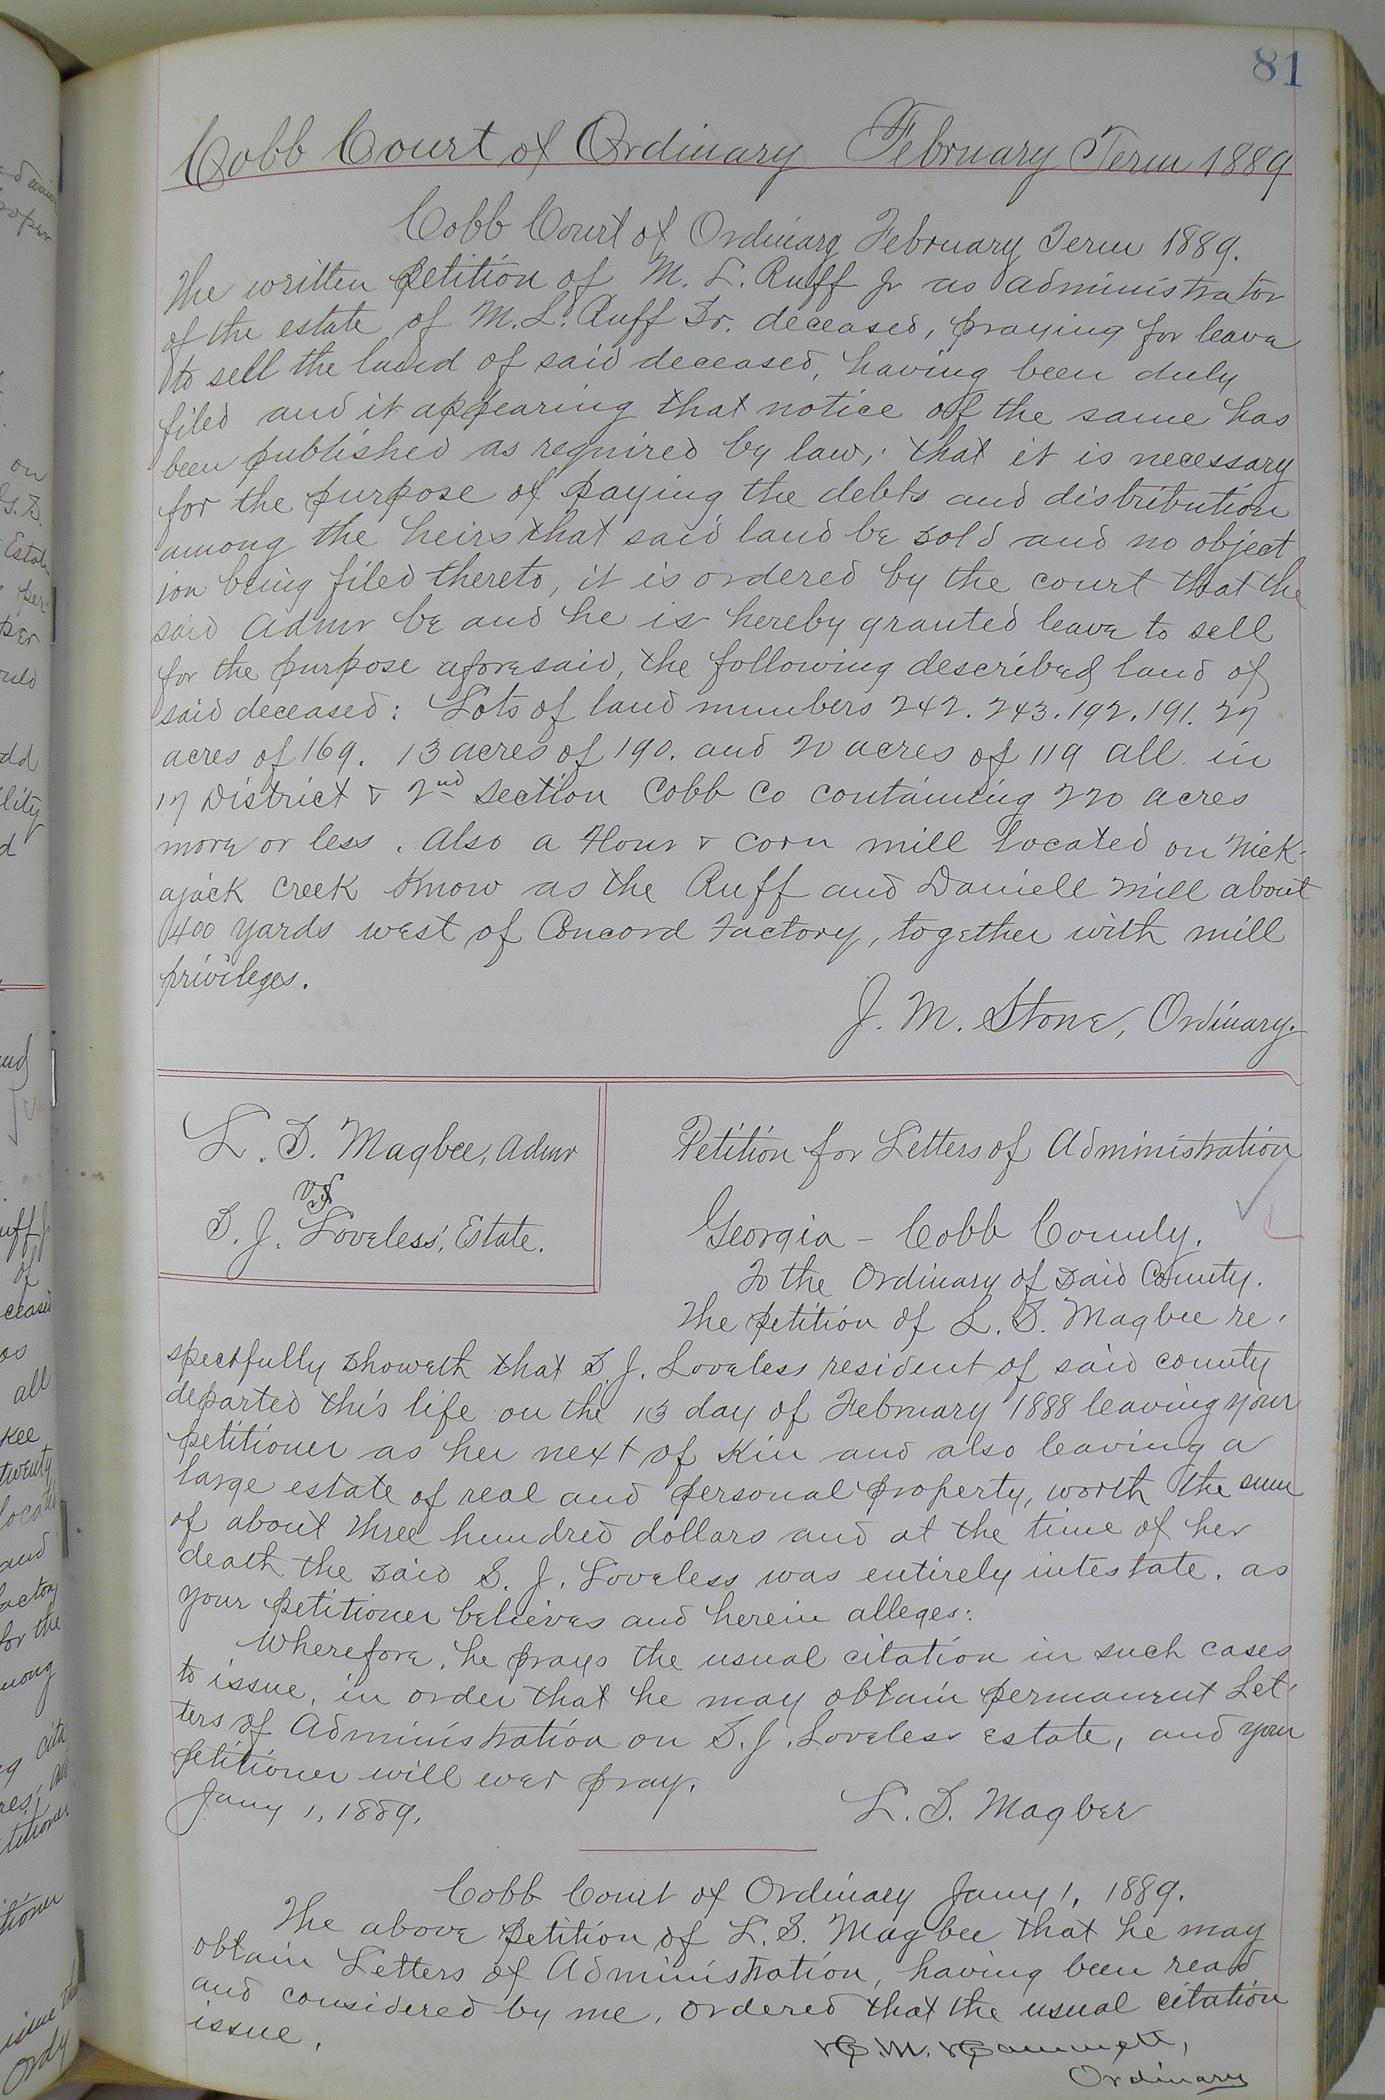 81
Cobb Court of Ordinary February Term 1889
Cobb Court of Ordinary February Term 1889.
The written petition of M. L. Ruff Jr as administrator
of the estate of M. L. Ruff Sr. deceased, praying for leave
to sell the land of said deceased, having been duly
filed and it appearing that notice of the same has
been published as required by law; that it is necessary
for the purpose of paying the debts and distribution
among the heirs that said land be sold and no object
ion being filed thereto, it is ordered by the court that the
said Admr be and he is hereby granted leave to sell
for the purpose aforesaid, the following described land of
said deceased: Lots of land numbers 242. 243. 192. 191. 27
acres of 169. 13 acres of 190. and 20 acres of 119 all in
17 District & 2nd Section Cobb Co containing 220 acres
more or less. Also a Flour & Corn mill located on Nick-
ajack Creek Know as the Ruff and Daniell Mill about
400 yards west of Concord Factory, together with mill
privileges.
J. M. Stone, Ordinary.
L. S. Magbee, Admr
vs
S. J. Loveless, Estate.
Petition for Letters of Administration
Georgia - Cobb County.
To the Ordinary of Said County.
The petition of L. S. Magbee re-
spectfully showeth that S. J. Loveless resident of said county
departed this life on the 13 day of February 1888 leaving your
petitioner as her next of Kin and also leaving a
large estate of real and personal property, worth the sum
of about three hundred dollars and at the time of her
death the said S. J. Loveless was entirely intestate, as
your petitioner believes and herein alleges:
Wherefore, he prays the usual citation in such cases
to issue, in order that he may obtain permanent Let-
ters of Administration on S. J. Loveless estate, and your
petitioner will ever pray.
Jany 1, 1889.
L. S. Magbee
Cobb Court of Ordinary Jany 1, 1889.
The above petition of L. S. Magbee that he may
obtain Letters of Administration, having been read
and considered by me, ordered that the usual citation
issue.
Ordinary